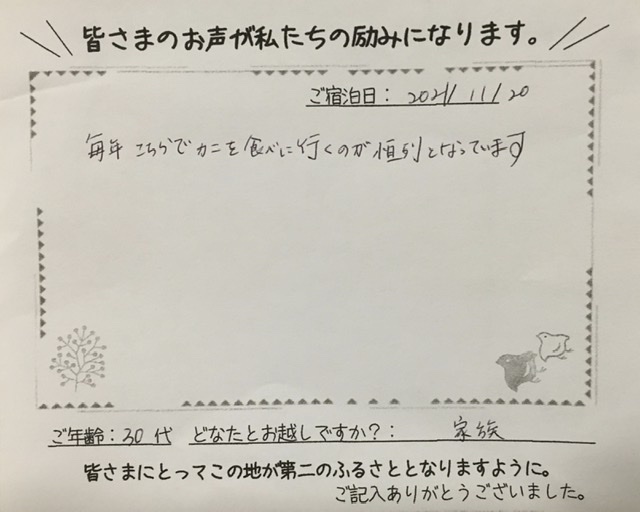 皆さまのお声が私たちの励みになります。
ご宿泊日: 2021/11/20
毎年こちらでカニを食べに行くのが恒例となっています
ご年齢:30代 どなたとお越しですか?: 家族
皆さまにとってこの地が第二のふるさととなりますように。
ご記入ありがとうございました。